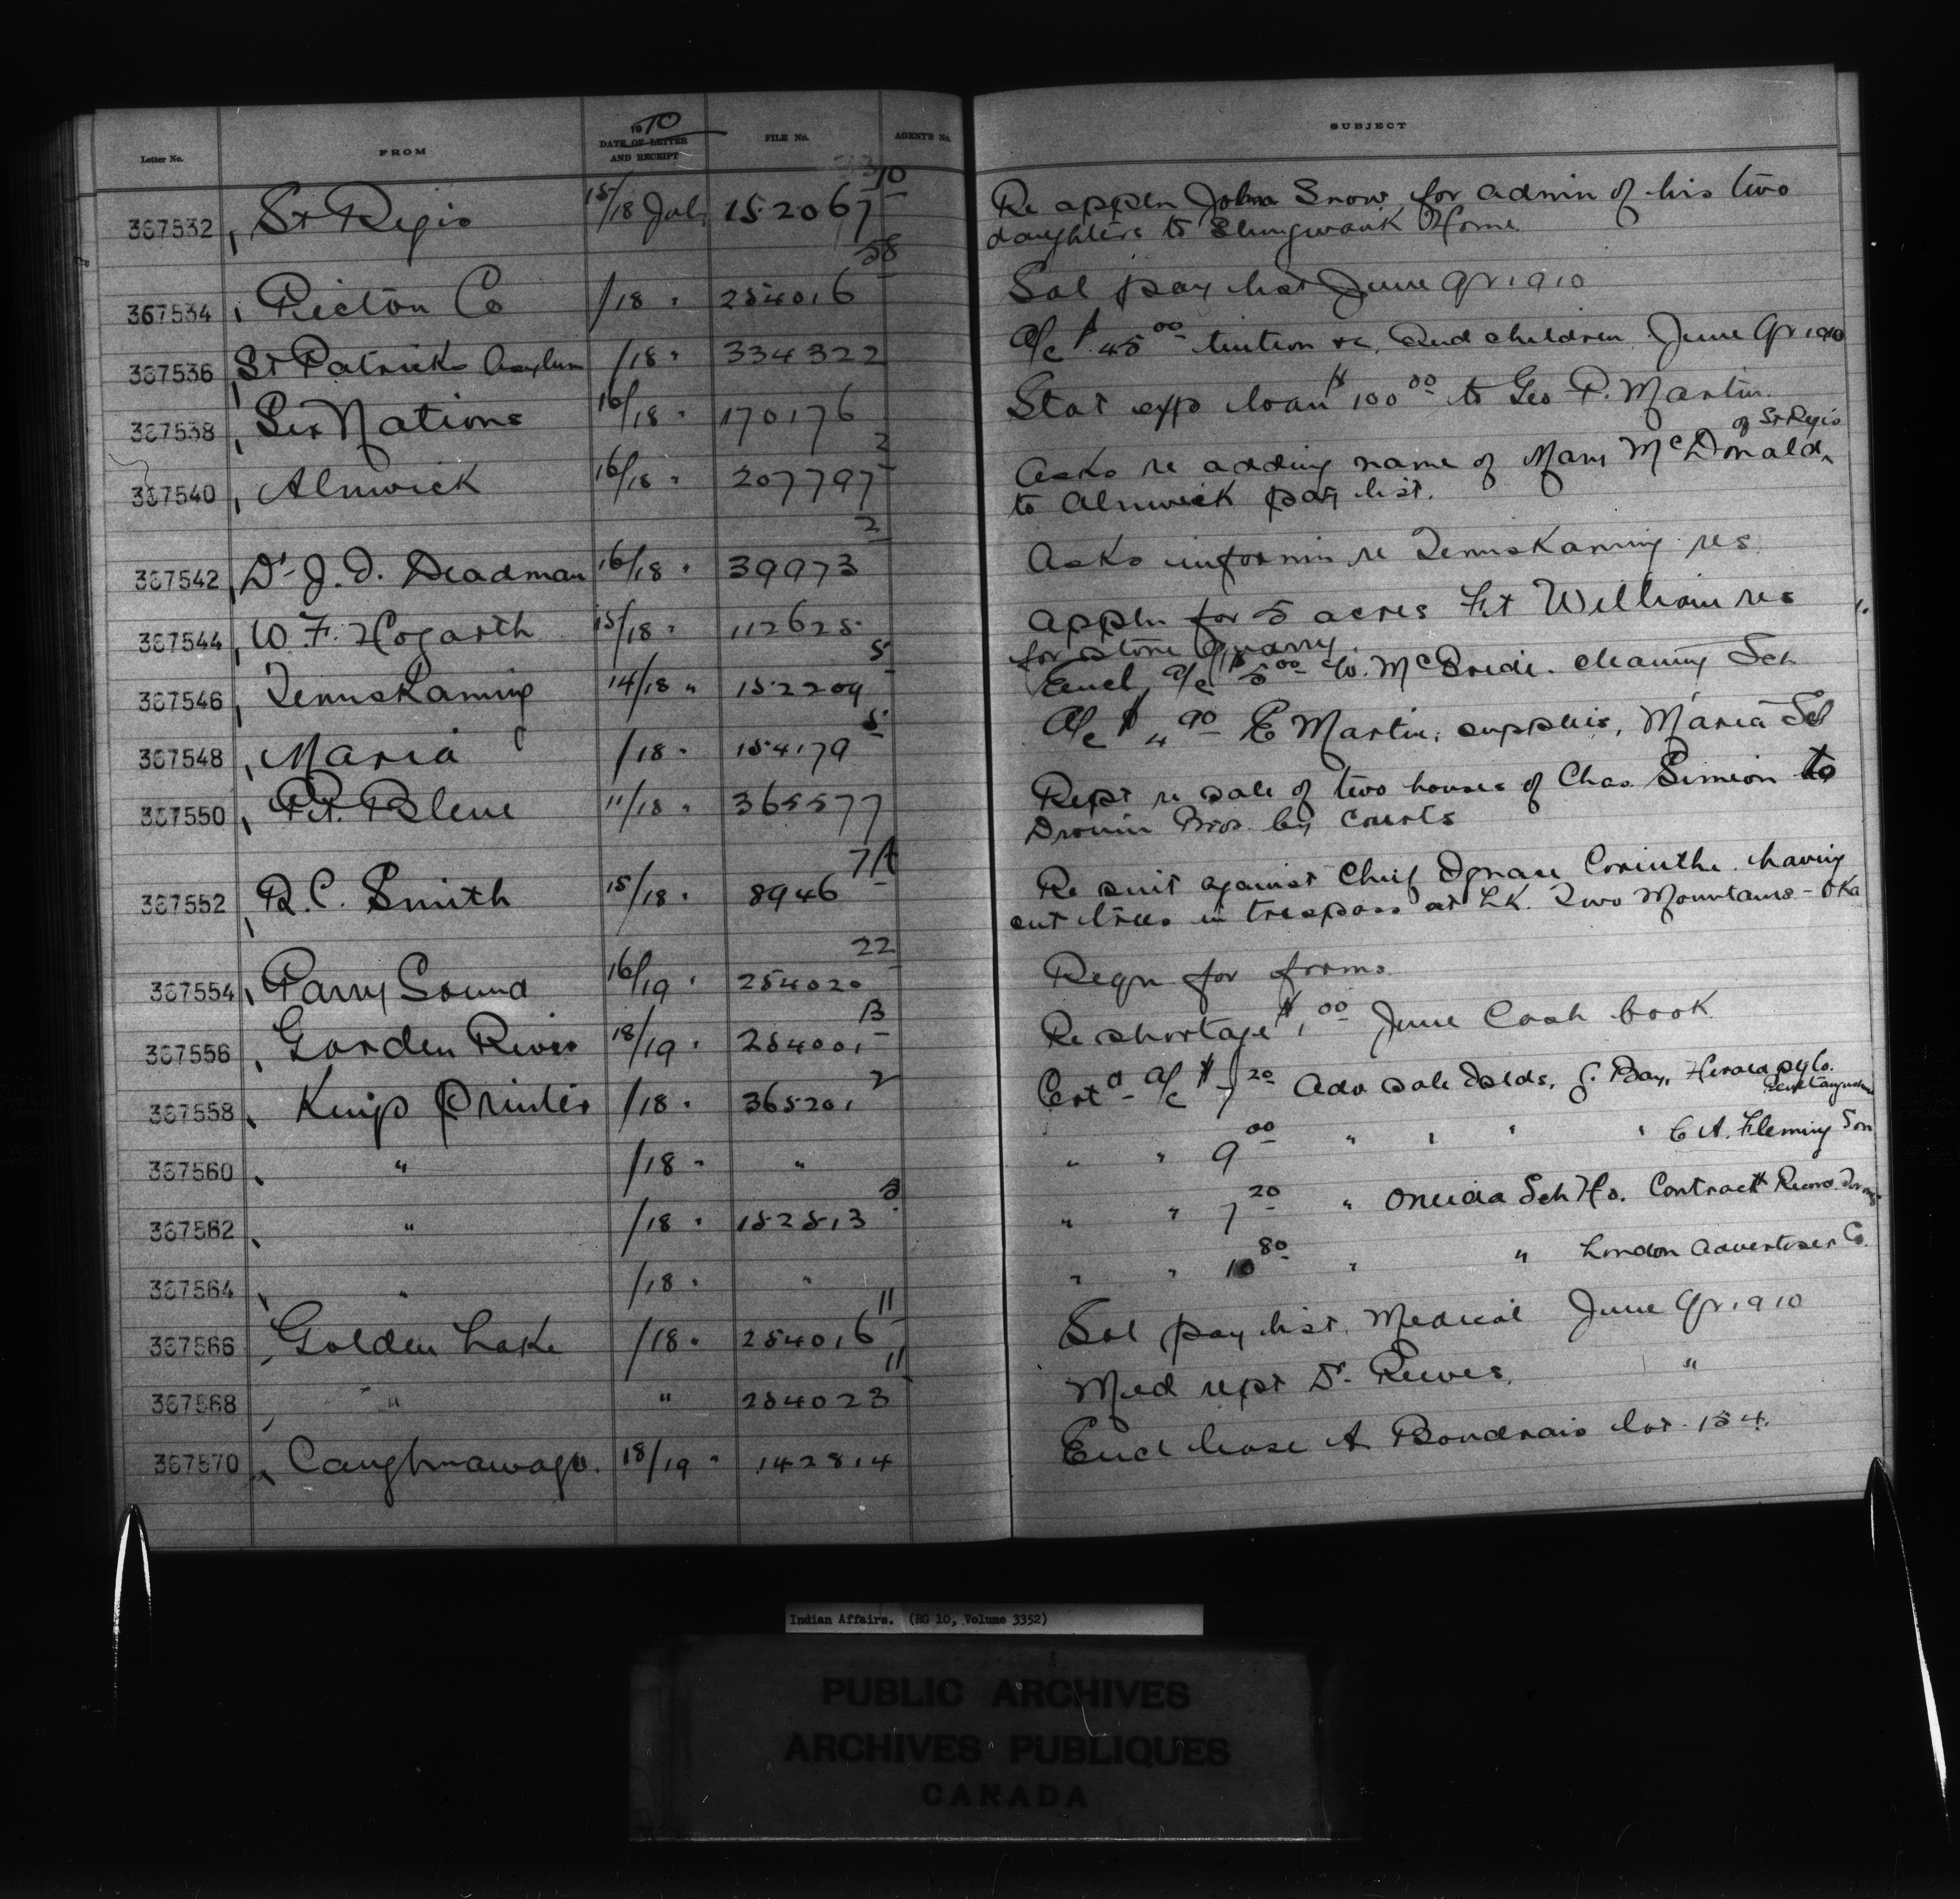 Letter No. FROM 1910 DATE OF LETTER AND RECEIPT FILE No. AGENTS No. SUBJECT
367532 St Regis 15/18 Jul 152067 10 Re appln John Snow for admin of his two
daughters to Shingwauk Home.
367534 Pictou Co /18 " 254016 58 Sal pay list June Qr 1910
367536 St Patricks Asylum /18 " 334322 A/c $45.00 tuition &c. Ind children June Qr 1910
367538 Six Nations 16/18 " 170176 Stat exp loan $100.00 to Geo P. Martin.
367540 Alnwick 16/18 " 207797 2 Asks re adding name of Mary McDonald, of St Regis
to Alnwick pay list.
367542 Dr J. D. Deadman 16/18 " 39973 2 Asks informn re Temiskaming res
367544 W. F. Hogarth 15/18 " 112625 Appln for 5 acres Ft William res
for stone quarry.
367546 Temiskaming 14/18 " 152209 5 Encl a/c $5.00 W. McBride. cleaning Sch
367548 Maria /18 " 154179 5 A/c $4.90 E Martin, supplies, Maria Sch
367550 Pt. Bleue 11/18 " 365577 Rept re sale of two houses of Chas. Simeon to
Drouin Bros. by Courts
367552 R. C. Smith 15/18 " 8946 7A Re suit against Chief Ignace Corinthe having
cut trees in trespass at Lk. Two Mountains - Oka
367554 Parry Sound 16/19 " 254020 22 Reqn for forms
367556 Garden River 18/19 " 254001 13 Re shortage $1.00 June Cash book
367558 Kings Printer /18 " 365201 2 Certd a/c $7.20 Adv sale Islds, G. Bay, Herald Co.
Penetanguishene
367560 " /18 " " " " 9.00 " " " " C A. Fleming Son
367562 " /18 " 152513 3 " " 7.20 " Oneida Sch Ho. Contract Record
367564 " /18 " " " " 10.80 " " London Advertiser Co.
367566 Golden Lake /18 " 254016 11 Sal pay list, Medical June Qr 1910
367568 " " 254023 11 Med rept Dr. Reeves, "
367570 Caughnawaga. 18/19 " 142814 Encl lease A Boudrais lot 154.
Indian Affairs. (RG 10, Volume 3352)
PUBLIC ARCHIVES
ARCHIVES PUBLIQUES
CANADA